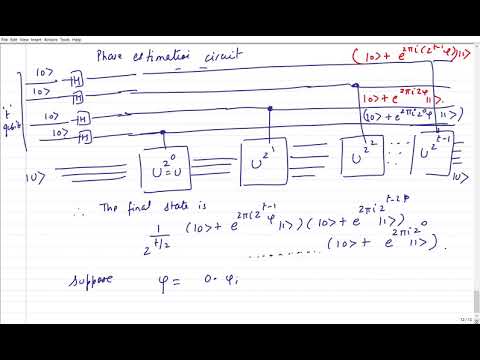 File Edit View Insert Actions Tools Help
Phase estimation circuit
(|0> + e^{2πi(2^{t-1}φ)}|1>)
|0> H
|0> H
't' qubits
|0> + e^{2πi2φ} |1>.
|0> H
(|0> + e^{2πi2^0φ} |1>)
|0> H
|u> U^{2^0} = U U^{2^1} U^{2^2} ... U^{2^{t-1}} |u>
∴ The final state is
1/2^{t/2} (|0> + e^{2πi(2^{t-1}φ} |1>) (|0> + e^{2πi2^{t-2}φ} |1>)
.......... (|0> + e^{2πi2^0} |1>).
Suppose φ = 0.φ₁
12 / 12